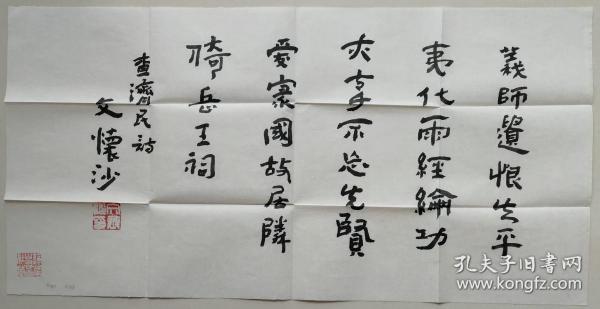 義師遺恨失平
夷代雨經綸功
不忘先賢
愛國故居隣
倚岳王祠
查濟民詩
文懷沙
孔夫子旧书网
www.kongfz.com